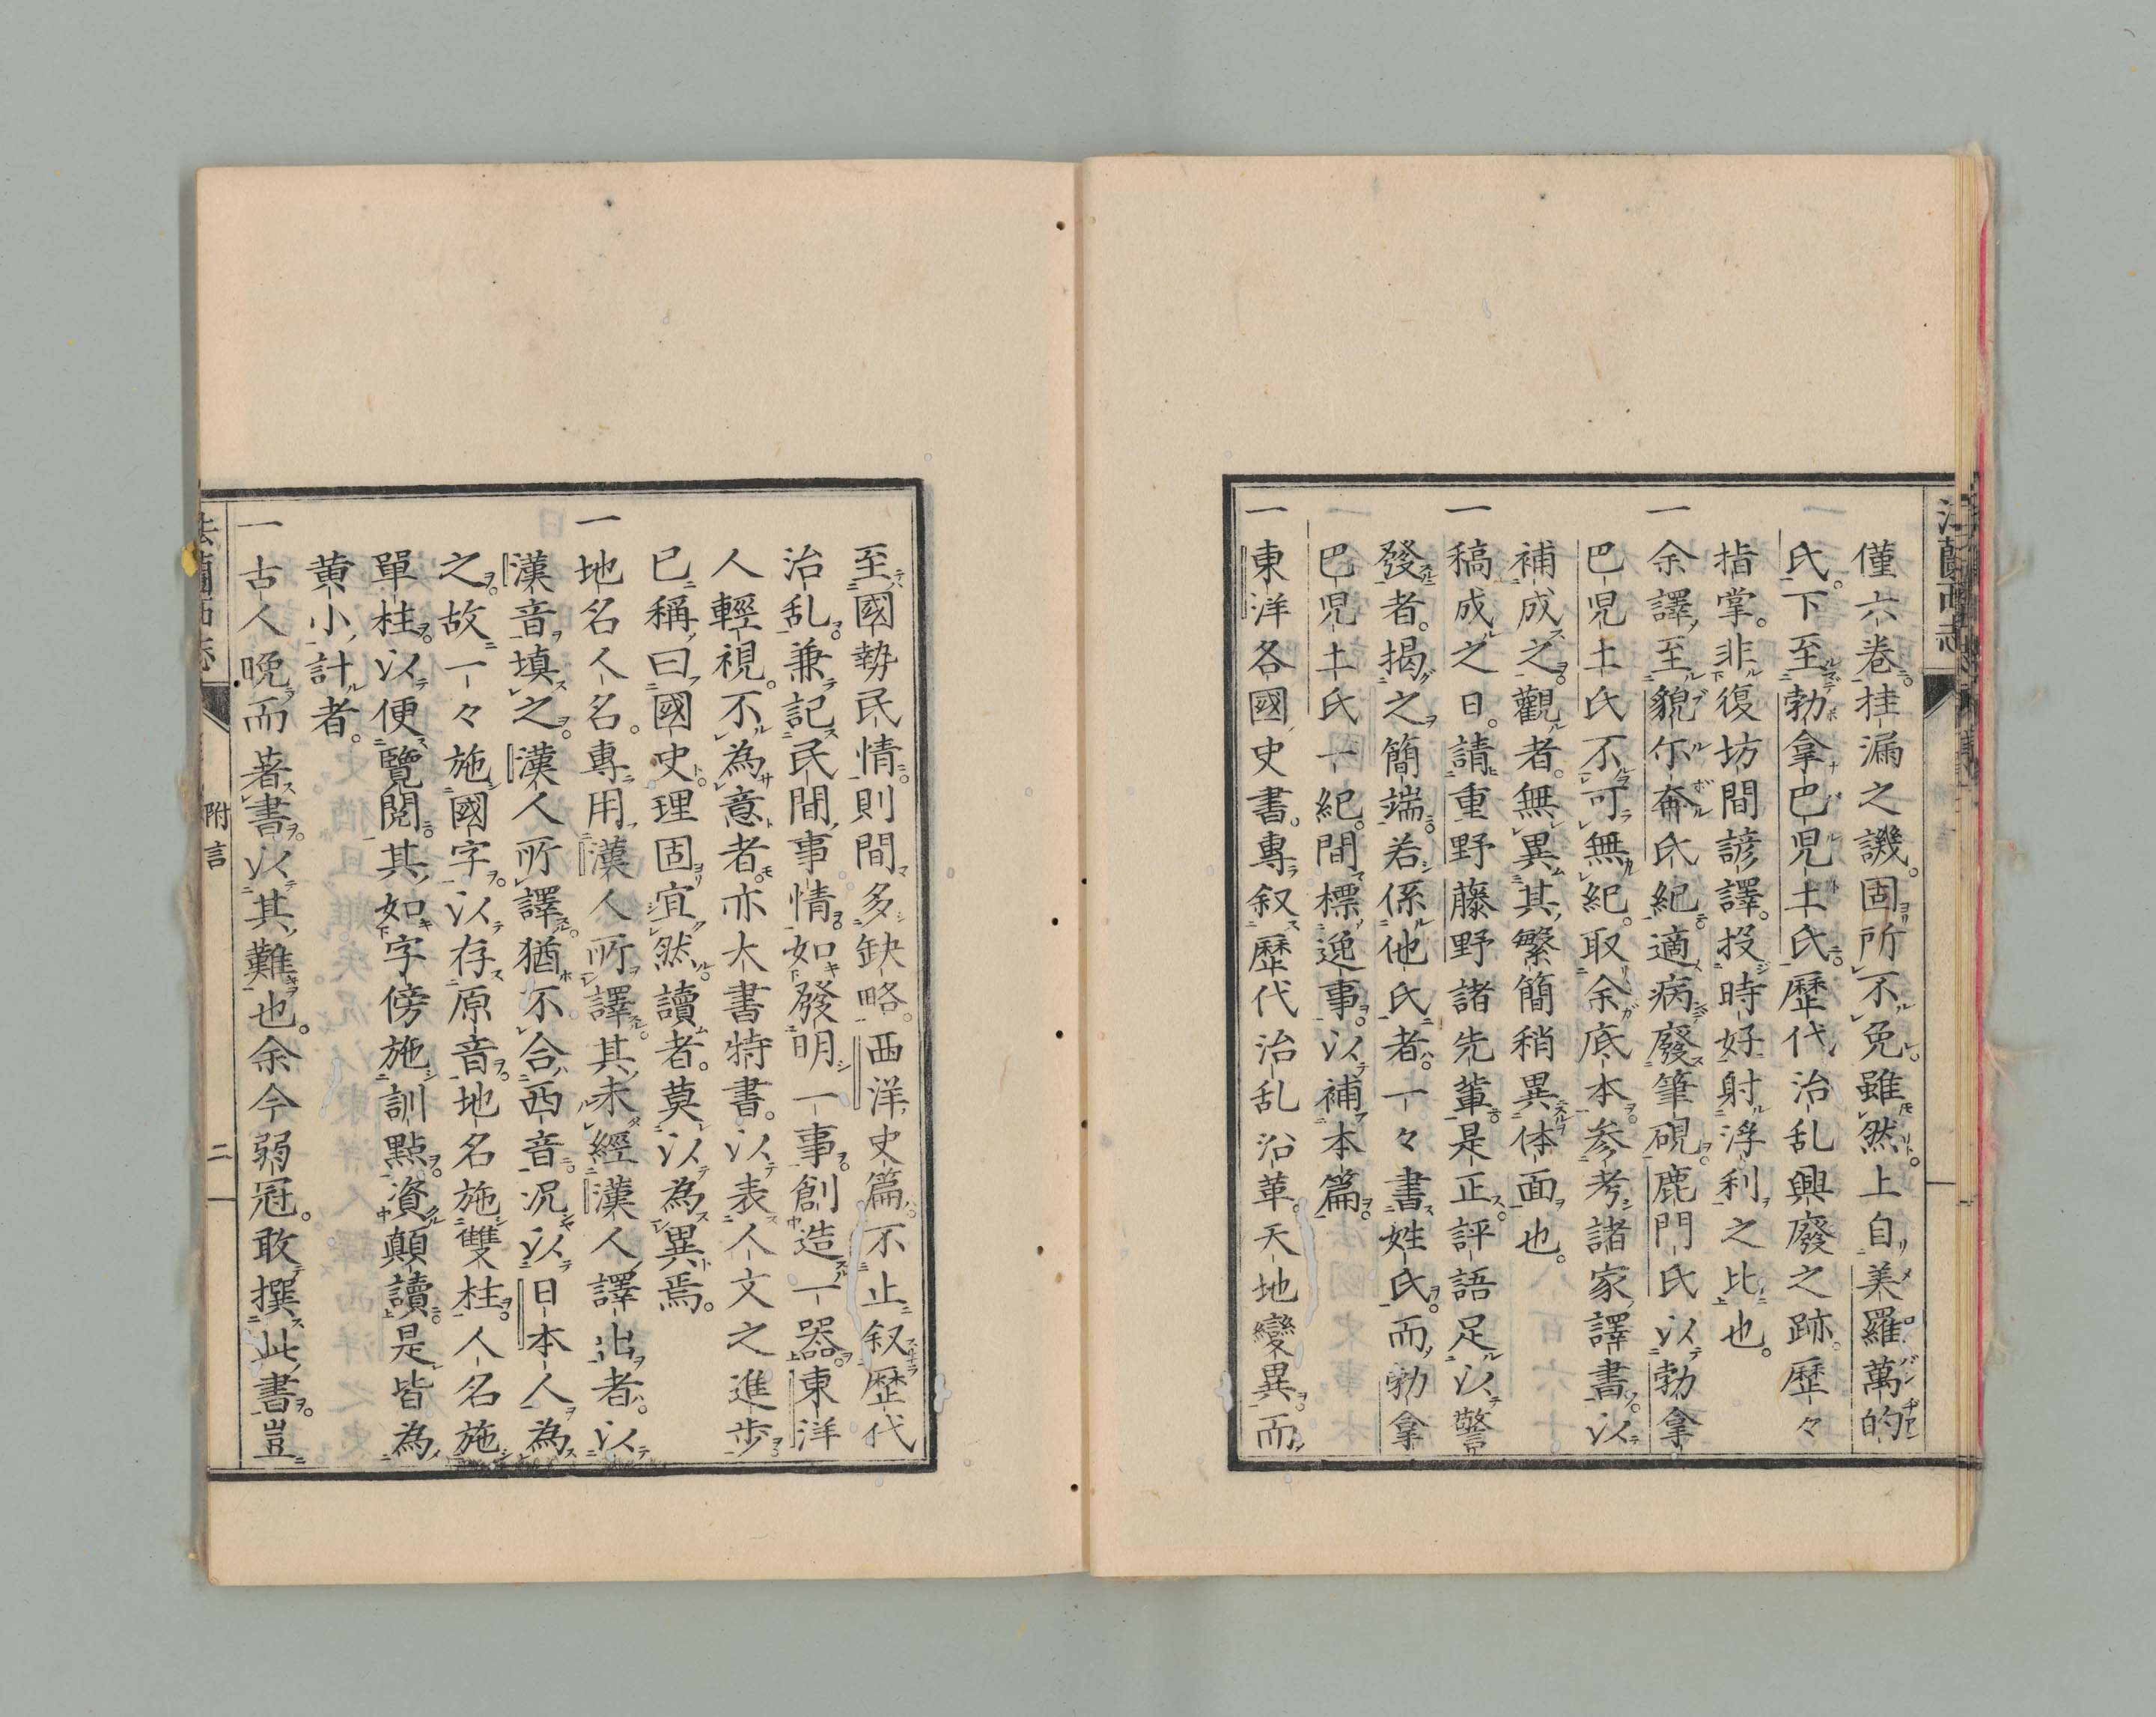 僅六卷挂漏之譏。固所不免。雖然。上自美羅萬的
氏。下至勃拿巴児土氏。歷代治乱興廢之跡。歷々
指掌。非復坊間諺譯。投時好射浮利之比也。
一余譯至貌尓奮氏紀適病廢筆硯。鹿門氏以勃拿
巴児土氏不可無紀。取余底本参考諸家譯書。以
補成之。觀者。無異其繁簡稍異体面也。
一稿成之日。請重野藤野諸先輩。是正評語足以警
發者。揭之簡端。若係他氏者。一々書姓氏。而勃拿
巴児土氏一紀。間標逸事。以補本篇。
一東洋各國史書。專叙歷代治乱沿革。天地變異。而
至國勢民情。則間多缺略。西洋史篇。不止叙歷代
治乱。兼記民間事情。如發明一事。創造一器。東洋
人輕視。不為意者。亦大書特書。以表人文之進步。
已稱曰國史。理固宜然。讀者。莫以為異焉。
一地名人名。專用漢人所譯。其未經漢人譯出者。以
漢音填之。漢人所譯。猶不合西音。况以日本人為
之。故一々施國字。以存原音。地名施雙柱。人名施
單柱。以便覽閲。其如字傍施訓點。資顛讀。是皆為
黄小計者。
一古人晩而著書。以其難也。余今弱冠。敢撰此書。豈
法蘭西志
附言
二